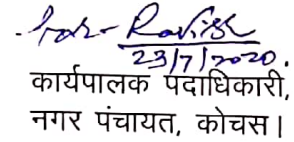 23/7/2020.
कार्यपालक पदाधिकारी,
नगर पंचायत, कोचस।